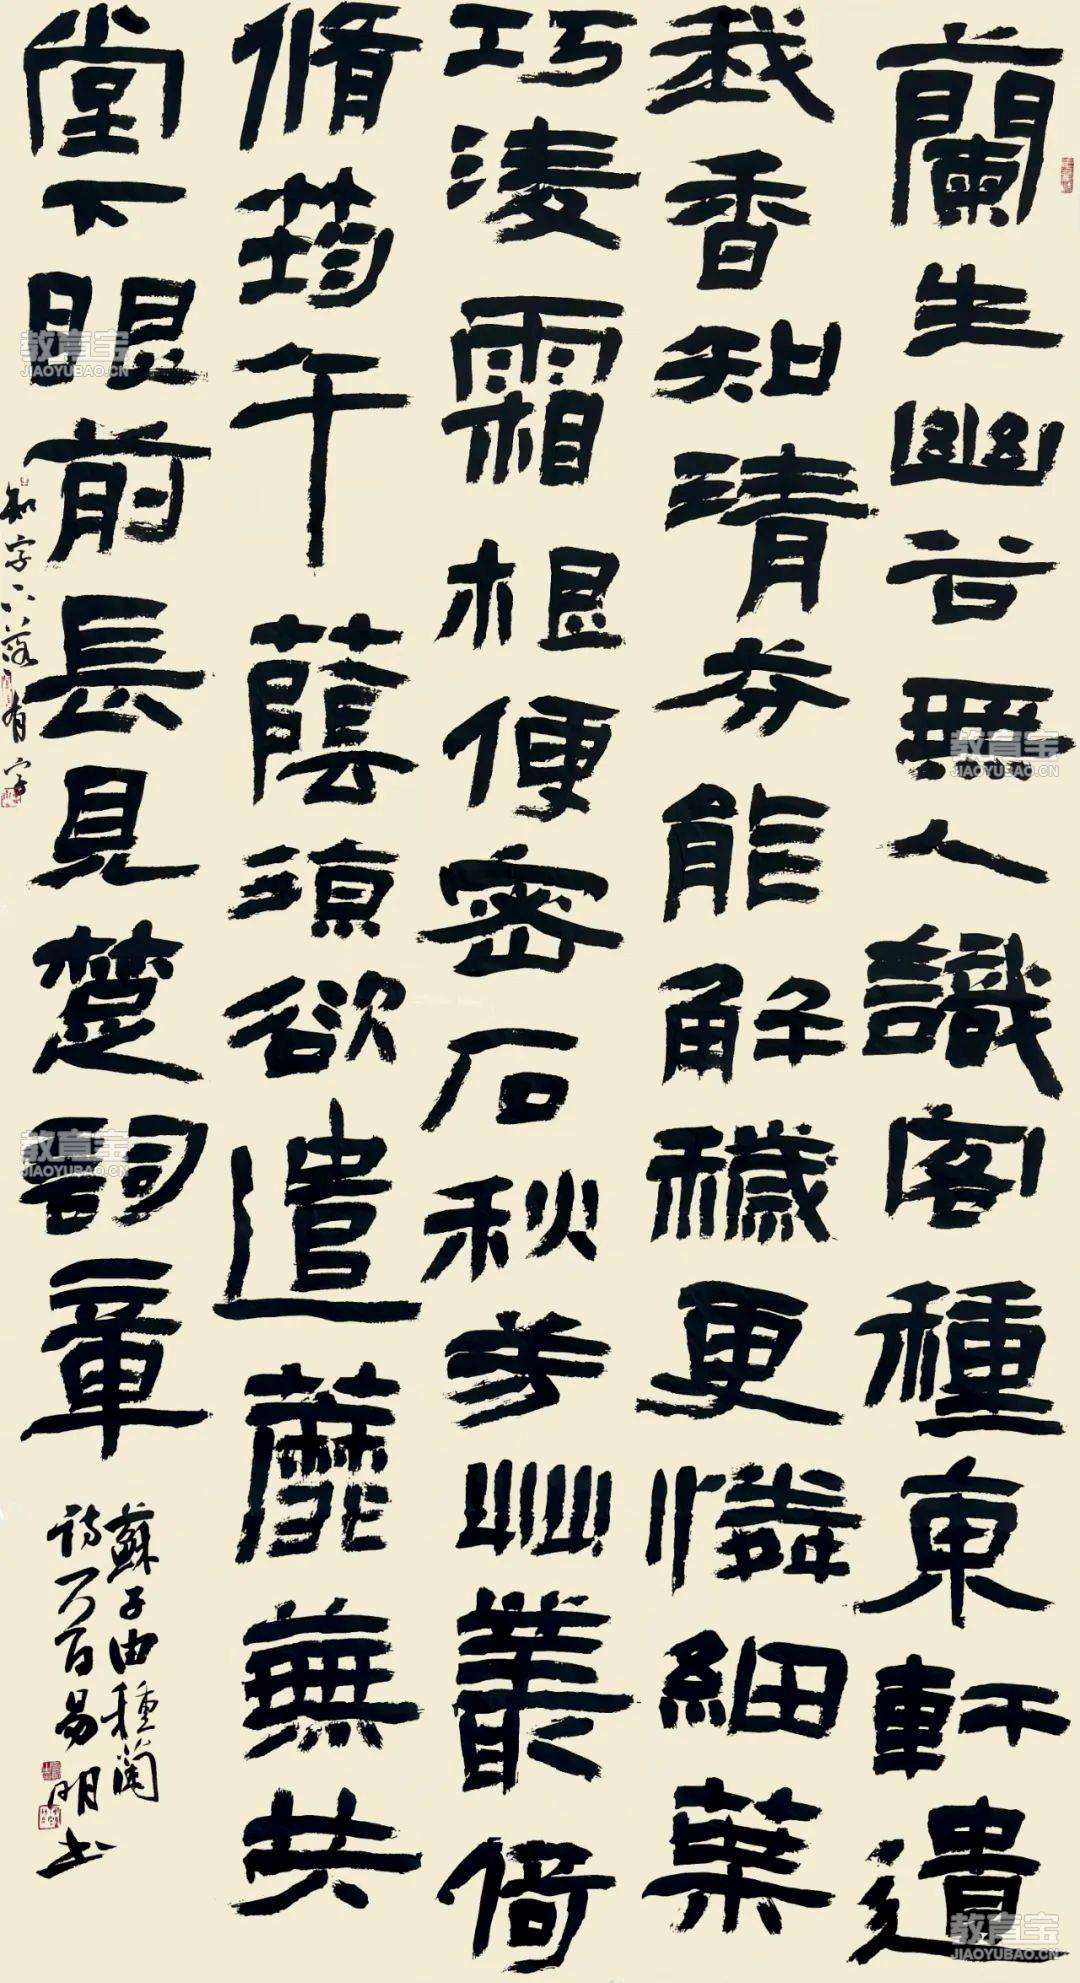 蘭生幽谷無人識客種東軒遺
我香知清芬能解穢更憐細葉
巧淩霜根便密石秋芳艸叢倚
脩筠午蔭涼欲遣蘼蕪共
堂下眼前長見楚詞章
蘇子由種蘭
詩丁酉易明书
知字下落有字
教育宝
JIAOYUBAO.CN
教育宝
JIAOYUBAO.CN
教育宝
JIAOYUBAO.CN
教育宝
JIAOYUBAO.CN